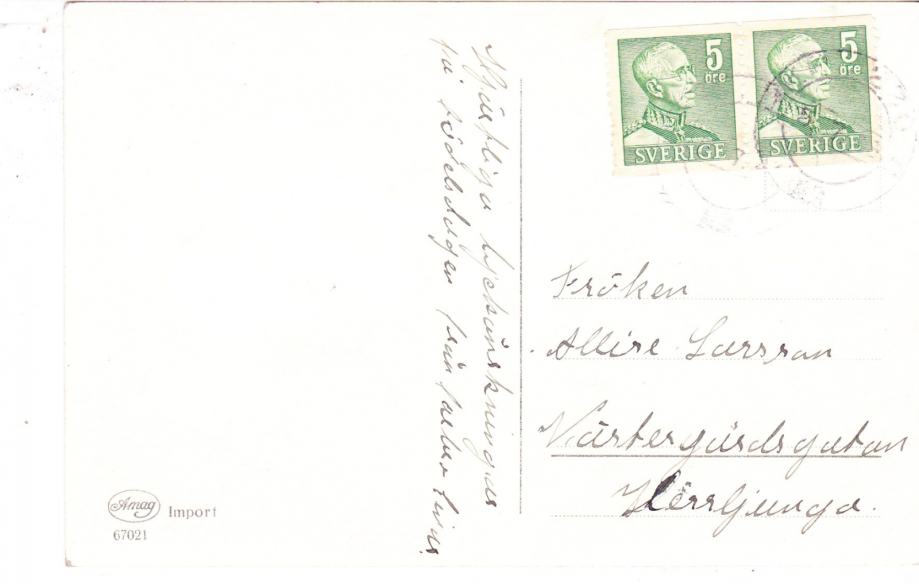 Hjärtliga lyckönskningar
på födelsdagen från
5
öre
SVERIGE
5
öre
SVERIGE
Fröken
Larsson
Västergårdsgatan
Herrljunga.
Amag
Import
67021